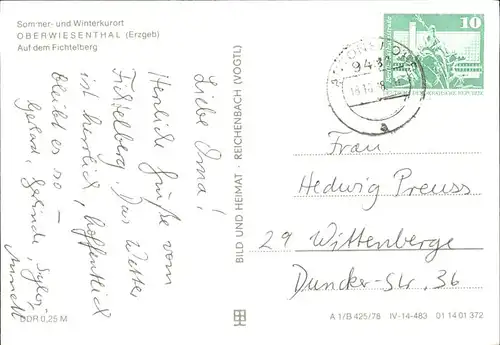 Sommer- und Winterkurort
OBERWIESENTHAL (Erzgeb)
Auf dem Fichtelberg
Liebe Oma!
Herzliche Grüße vom
Fichtelberg. Das Wetter
ist herrlich, hoffentlich
bleibt es so –
Gerhard, Gelinde,
Annett
DDR 0,25 M
BILD UND HEIMAT · REICHENBACH (VOGTL)
10
DEUTSCHE DEMOKRATISCHE REPUBLIK
Frau
Hedwig Preuss
29 Wittenberge
Duncker-Str. 36
A 1/B 425/78 IV-14-483 01 14 01 372